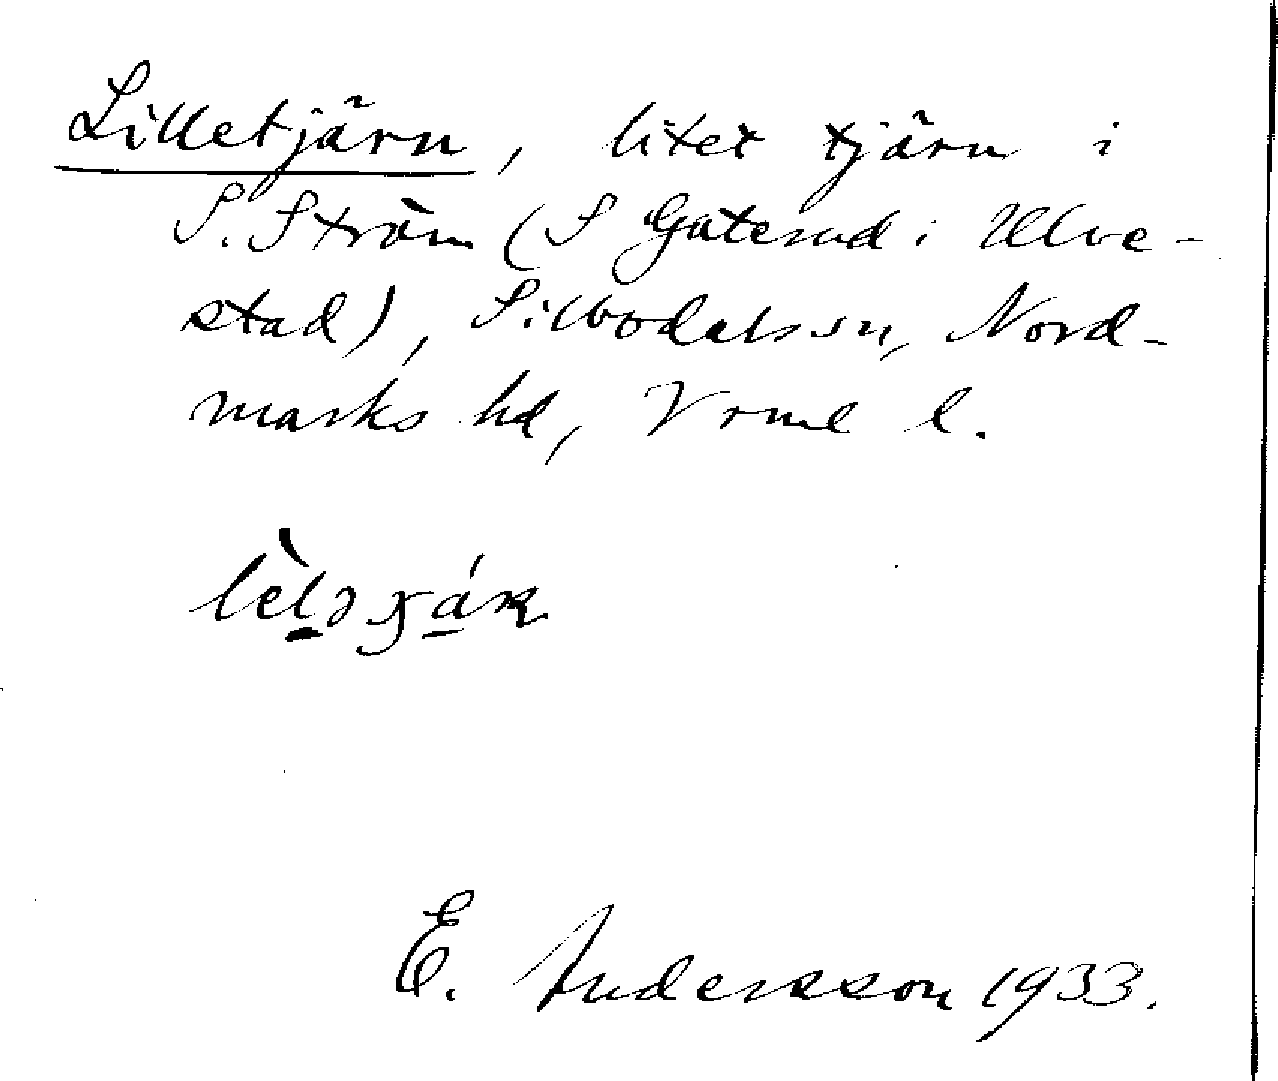 Lilletjärn, litet tjärn i
S. Ström (S Gaterud i Ulve-
stad), Silbodals sn, Nord-
marks hd, Vrml l.
E. Andersson 1933.